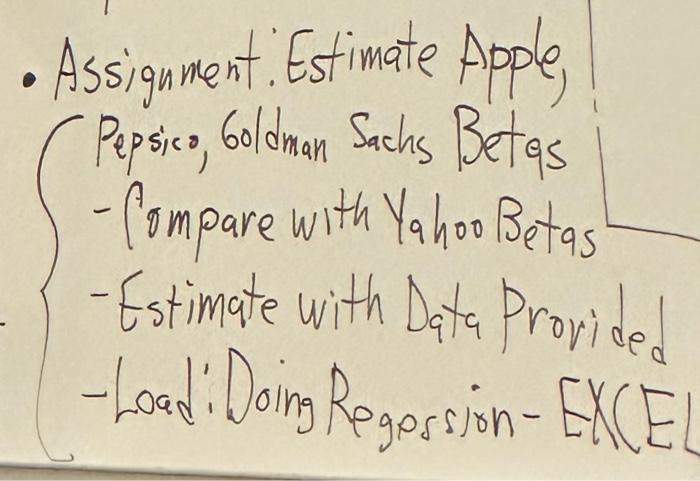 • Assignment: Estimate Apple,
Pepsico, Goldman Sachs Betas
- Compare with Yahoo Betas
- Estimate with Data Provided
- Load: Doing Regression - EXCEL